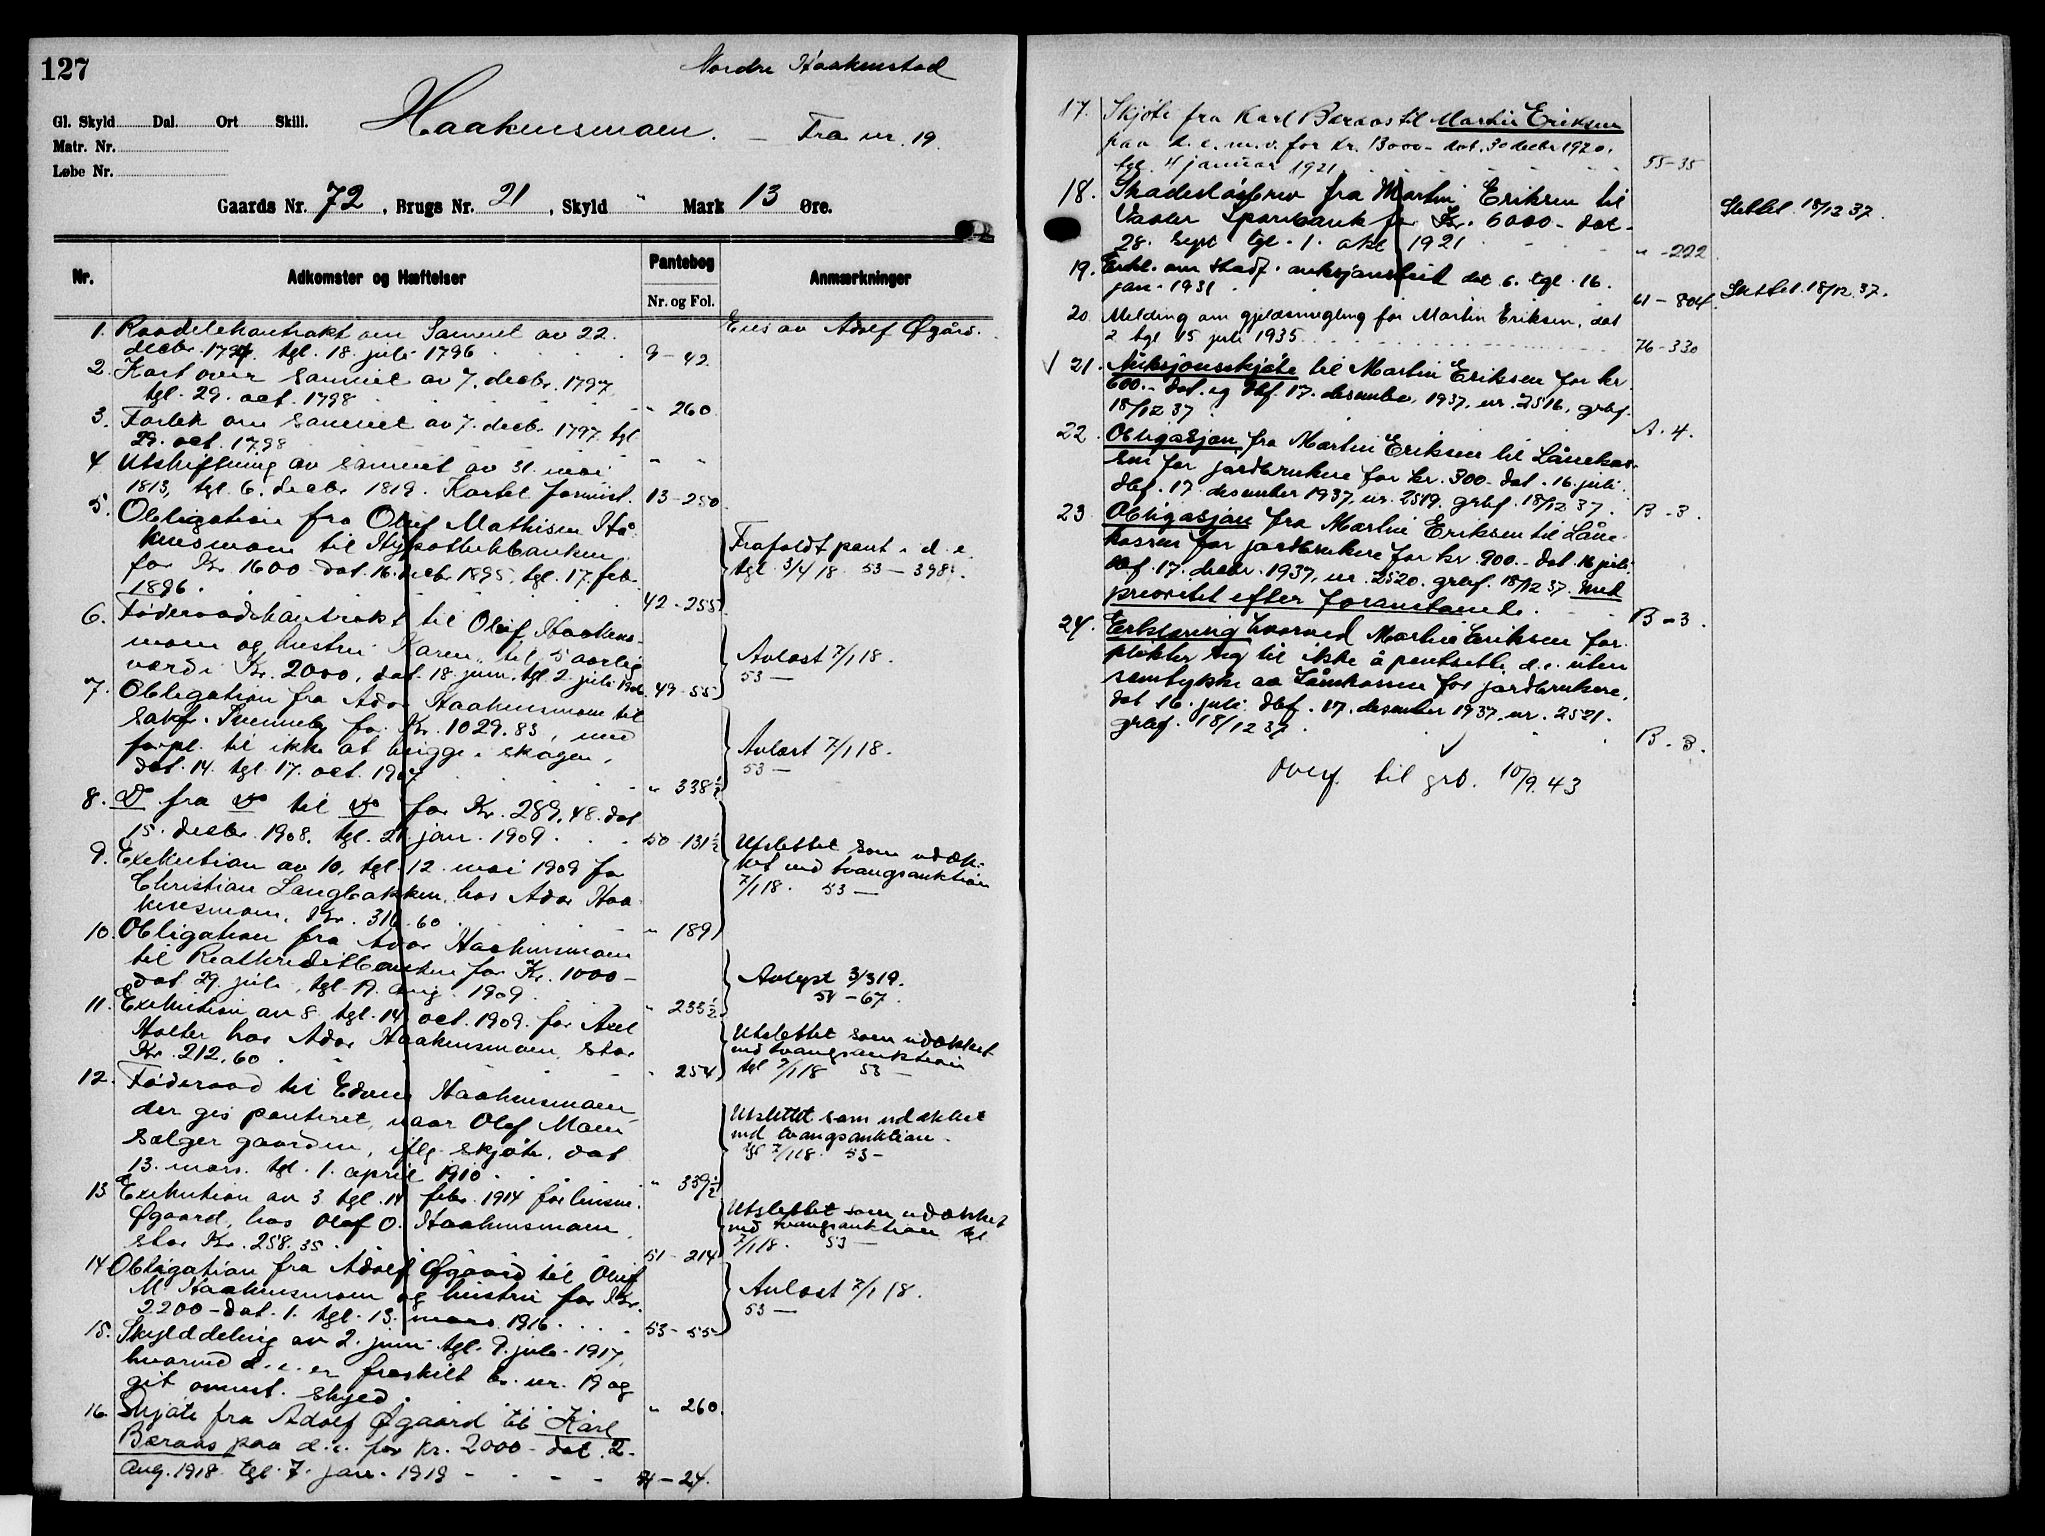 127
Nordre Haakenstad
Haakensmoen. — Fra nr. 19.
Gl. Skyld Dal. Ort Skill.
Matr. Nr.
Løbe Nr.
Gaards Nr. 72, Brugs Nr. 21, Skyld " Mark 13 Øre.
Nr. Adkomster og Hæftelser Pantebog Nr. og Fol. Anmærkninger
1. Raadelekontrakt om Sameiet av 22. Eies av Adolf Øgård.
decbr. 1794. tgl. 18. juli 1796 9-42.
2. Kart over sameiet av 7. decbr. 1797
tgl. 29. oct. 1798 " 260
3. Forlik om sameiet av 7. decbr. 1797 tgl
29. oct. 1798 " "
4 Utskiftning av sameiet av 31. mai
1813, tgl. 6. decbr 1819. Kartet forevist. 13-250
5. Obligation fra Oluf Mathisen Haa-
kensmoen til Hypothekbanken
for Kr 1600 dat. 16. decbr. 1895, tgl. 17. feb.
1896. 42-255
Frafaldt pant i d. e.
tgl. 3/4 18. 53-398.
6. Føderaadskontrakt til Oluf Haakens-
moen og hustru Karen, til 5 aarlig
værdi Kr. 2000, dat 18 juni, tgl 2 juli 49-55
Avlæst 7/1 18.
53 —
7. Obligation fra Ador Haakensmoen til
sakf. Svenneby for Kr. 1029.83, med
forpl. til ikke at hugge i skogen,
dat. 14. tgl. 17. oct. 1907 " 338½
Avlæst 7/1 18.
53 —
8. Do fra do til do for Kr. 289,48. dat
15. decbr. 1908. tgl. 21 jan. 1909. 50-131½
9. Exekution av 10, tgl. 12 mai 1909 for
Christian Langbakken, hos Ador Haa-
kensmoen, Kr. 316.60 " 189
Utslettet som udæk-
ket ved tvangsauktion
7/1 18. 53 —
10. Obligation fra Ador Haakensmoen
til Realkreditbanken for Kr. 1000 —
dat 29. juli, tgl. 19. aug. 1909. " 233½
Avlyst 3/3 19.
54-67.
11. Exekution av 8. tgl. 14 oct. 1909. for Axel
Holter hos Ador Haakensmoen, stor
Kr. 212,60. " 254
Utslettet som udækket
ved tvangsauktion
tgl 7/1 18 53 —
12. Føderaad til Edvin Haakensmoen
der gis panteret, naar Olaf Moen
sælger gaarden, iflg. skjøte, dat
13. mars. tgl. 1. april 1910. " 339½
Utslettet som udækket
ved tvangsauktion.
tgl 7/1 18. 53 —
13 Exekution av 3 tgl. 14 febr. 1914 for
Øgaard, hos Olaf O. Haakensmoen,
stor Kr. 258.35. 51-214
Utslettet som udækket
ved tvangsauktion tgl
7/1 18. 53 —
14 Obligation fra Adolf Øgaard til Oluf
M. Haakensmoen og hustru for Kr.
2200 — dat. 1. tgl. 13. mars 1916. 53-55
Avlæst 7/1 18.
53 —
15. Skylddeling av 2. juni tgl. 9. juli 1917,
hvorved d. e. er fraskilt br. nr. 19 og
git ovennt. skyld. " 260.
16. Skjøte fra Adolf Øgaard til Karl
Beraas paa d. e. for Kr. 2000 — dat. 2.
Aug. 1918. tgl. 7. jan. 1919 - 54-24.
17. Skjøte fra Karl Beraas til Martin Eriksen
paa d. e. m. v. for Kr. 13000 — dat. 30 decbr 1920.
tgl. 4 januar 1921. 55-35
18. Skadesløsbrev fra Martin Eriksen til
Vaaler Sparebank for Kr. 6000 — dat.
28. sept tgl. 1. okt 1921 " -222.
Slettet. 18/12 37.
19. Erkl. om stadf. auksjonsbud dat 6. tgl. 16.
jan. 1931. 61-804.
Slettet. 18/12. 37.
20. Melding om gjeldsmegling for Martin Eriksen, dat
2 tgl 15 juli 1935. 76-330
√ 21. Auksjonsskjøte til Martin Eriksen for kr
600.- Dat. og dbf. 17. desember, 1937, nr. 2516, grbf.
18/12 37 A. 4.
22. Obligasjon fra Martin Eriksen til Lånekas-
sen for jordbrukere for kr. 300 - dat. 16. juli
dbf. 17. desember 1937, nr. 2519. grbf. 18/12 37. B-3.
23. Obligasjon fra Martin Eriksen til Låne-
kassen for jordbrukere for kr 900.- dat. 16 juli.
dbf. 17. decbr. 1937, nr. 2520. grbf. 18/12 37. med
prioritet efter foranstående. B-3.
24. Erklæring hvorved Martin Eriksen for-
plikter sig til ikke å pantsette d. e. uten
samtykke av Lånekassen for jordbrukere,
dat 16. juli. dbf. 17. desember 1937, nr. 2521.
grbf. 18/12 37. B. 3.
√
Overf. til grb. 10/9. 43